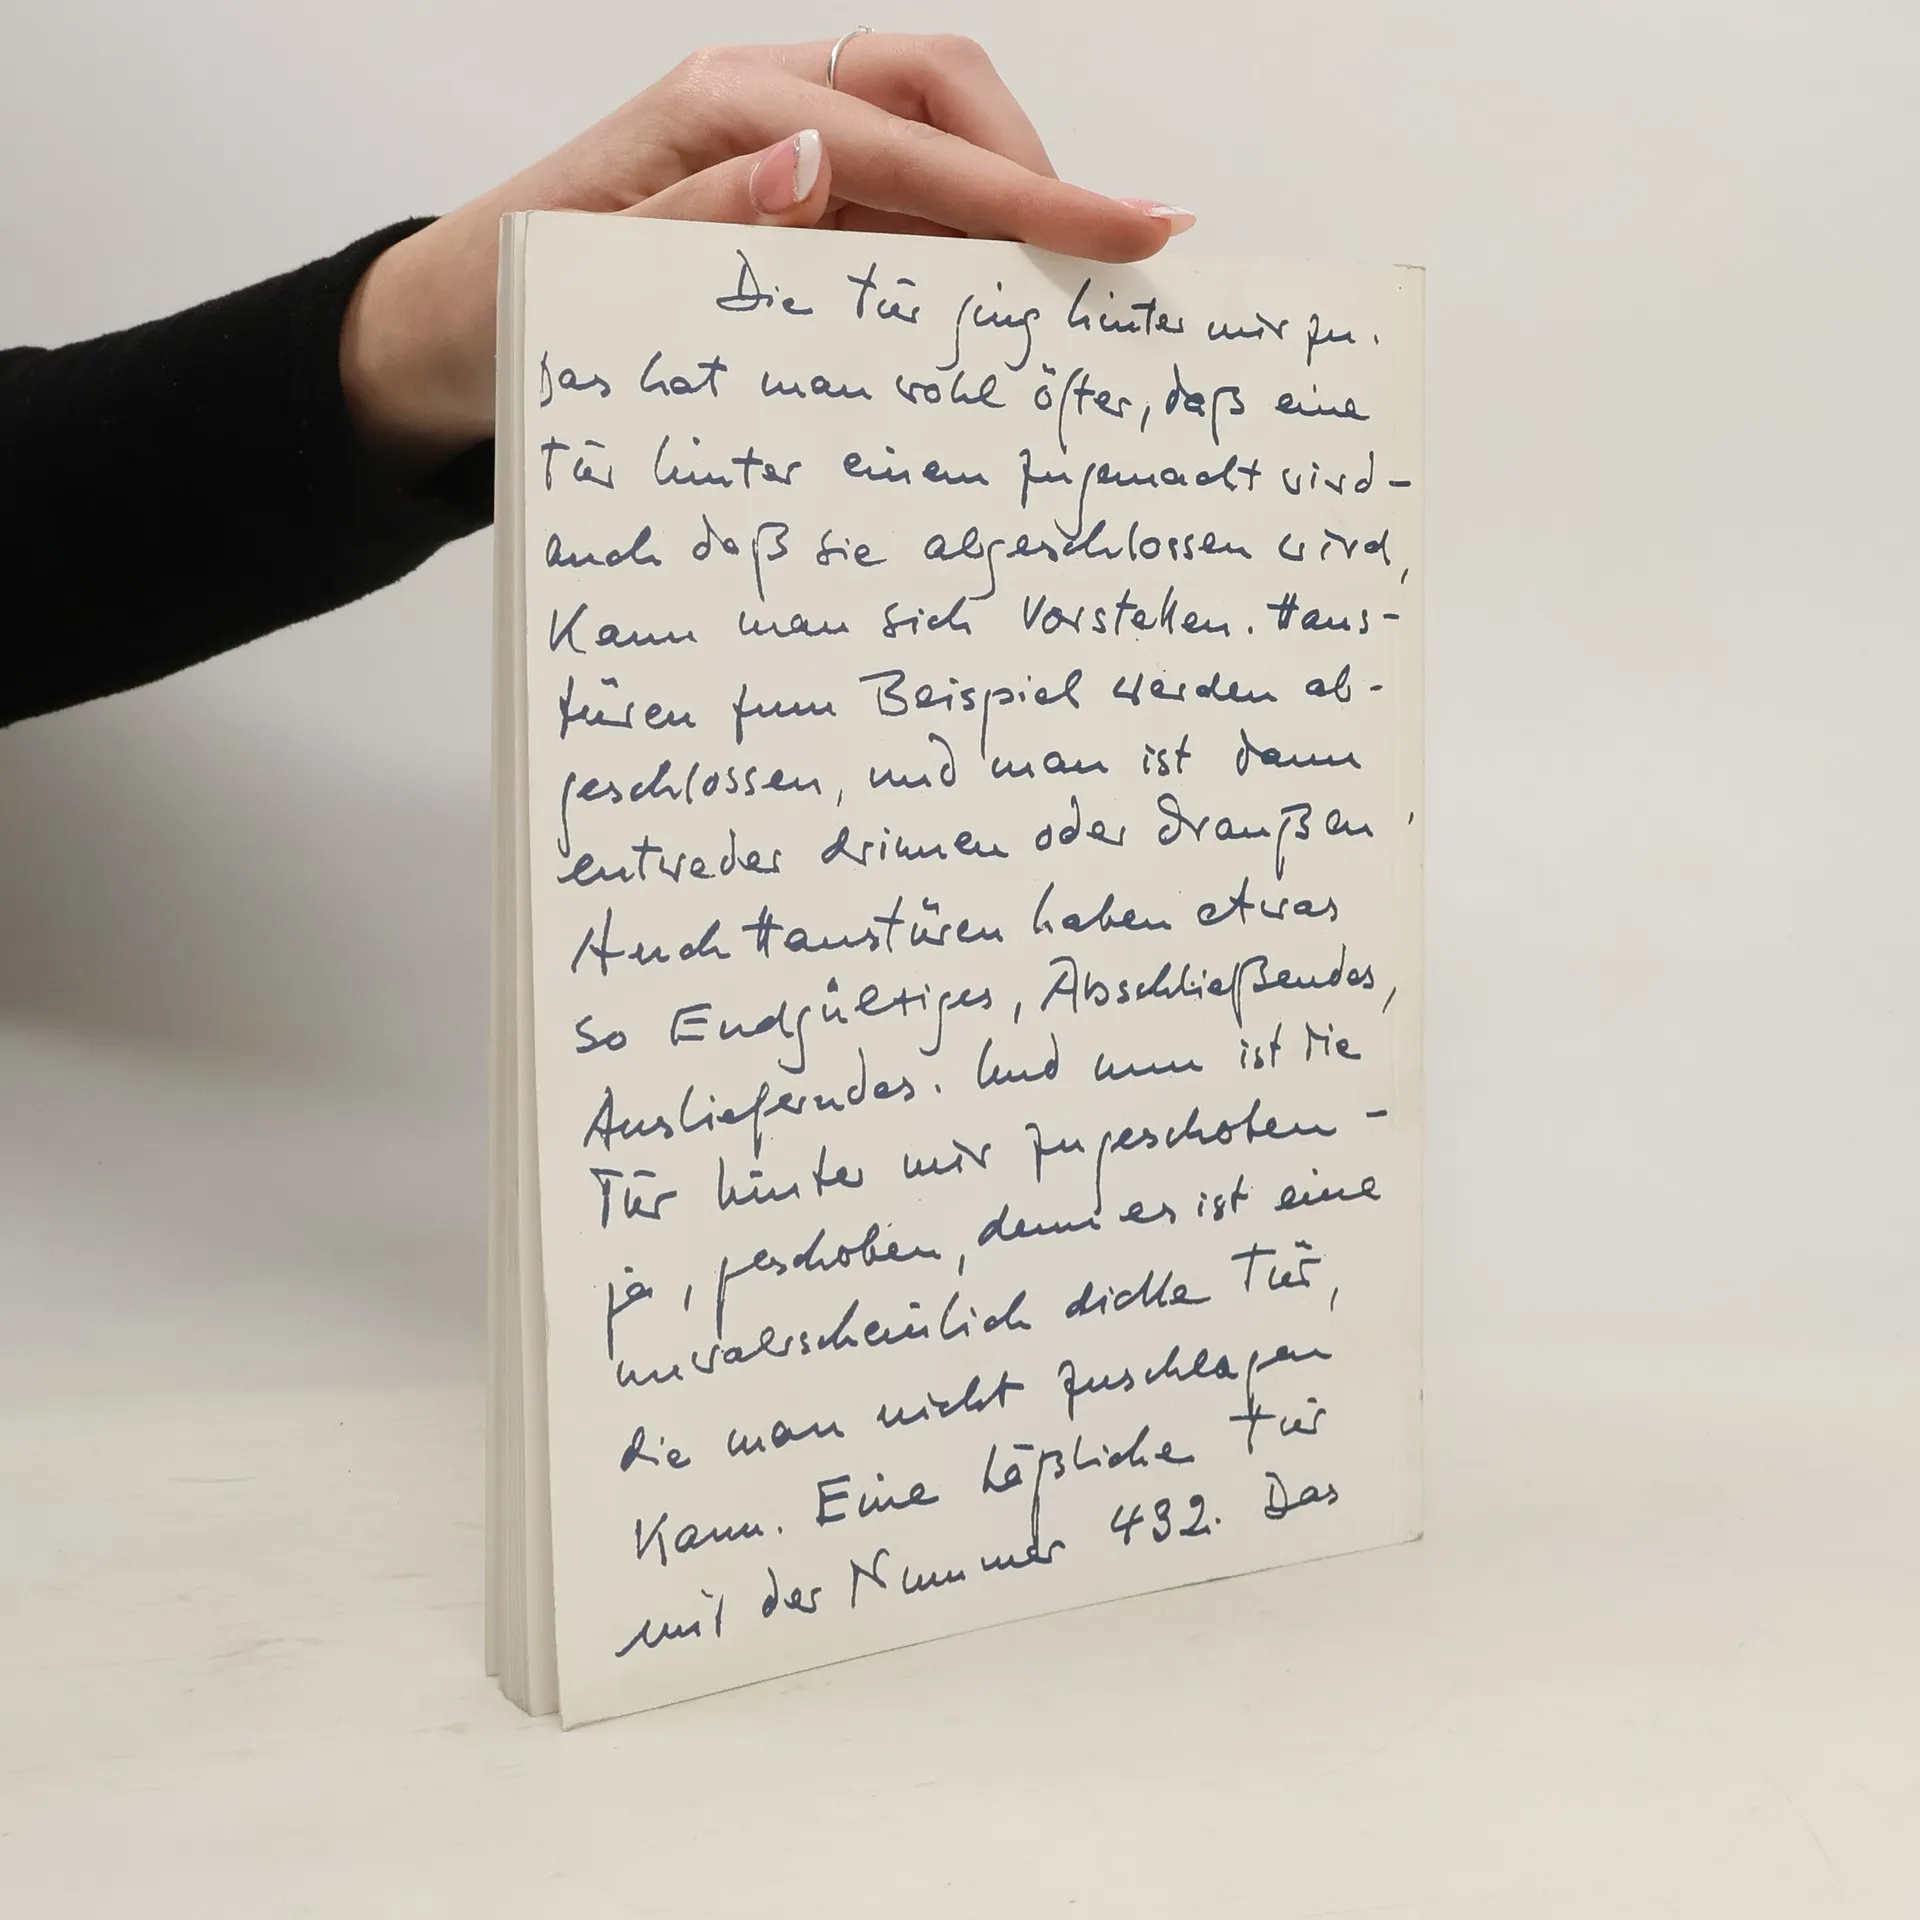 Die Tür ging hinter mir zu.
Das hat man wohl öfter, daß eine
Tür hinter einem zugemacht wird –
auch daß sie abgeschlossen wird,
kann man sich vorstellen. Haus-
türen zum Beispiel werden ab-
geschlossen, und man ist dann
entweder drinnen oder draußen.
Auch Haustüren haben etwas
so Endgültiges, Abschließendes,
Auslieferndes. Und nun ist die
Tür hinter mir zugeschoben –
ja, geschoben, denn es ist eine
unwahrscheinlich dicke Tür,
die man nicht zuschlagen
kann. Eine häßliche Tür
mit der Nummer 432. Das